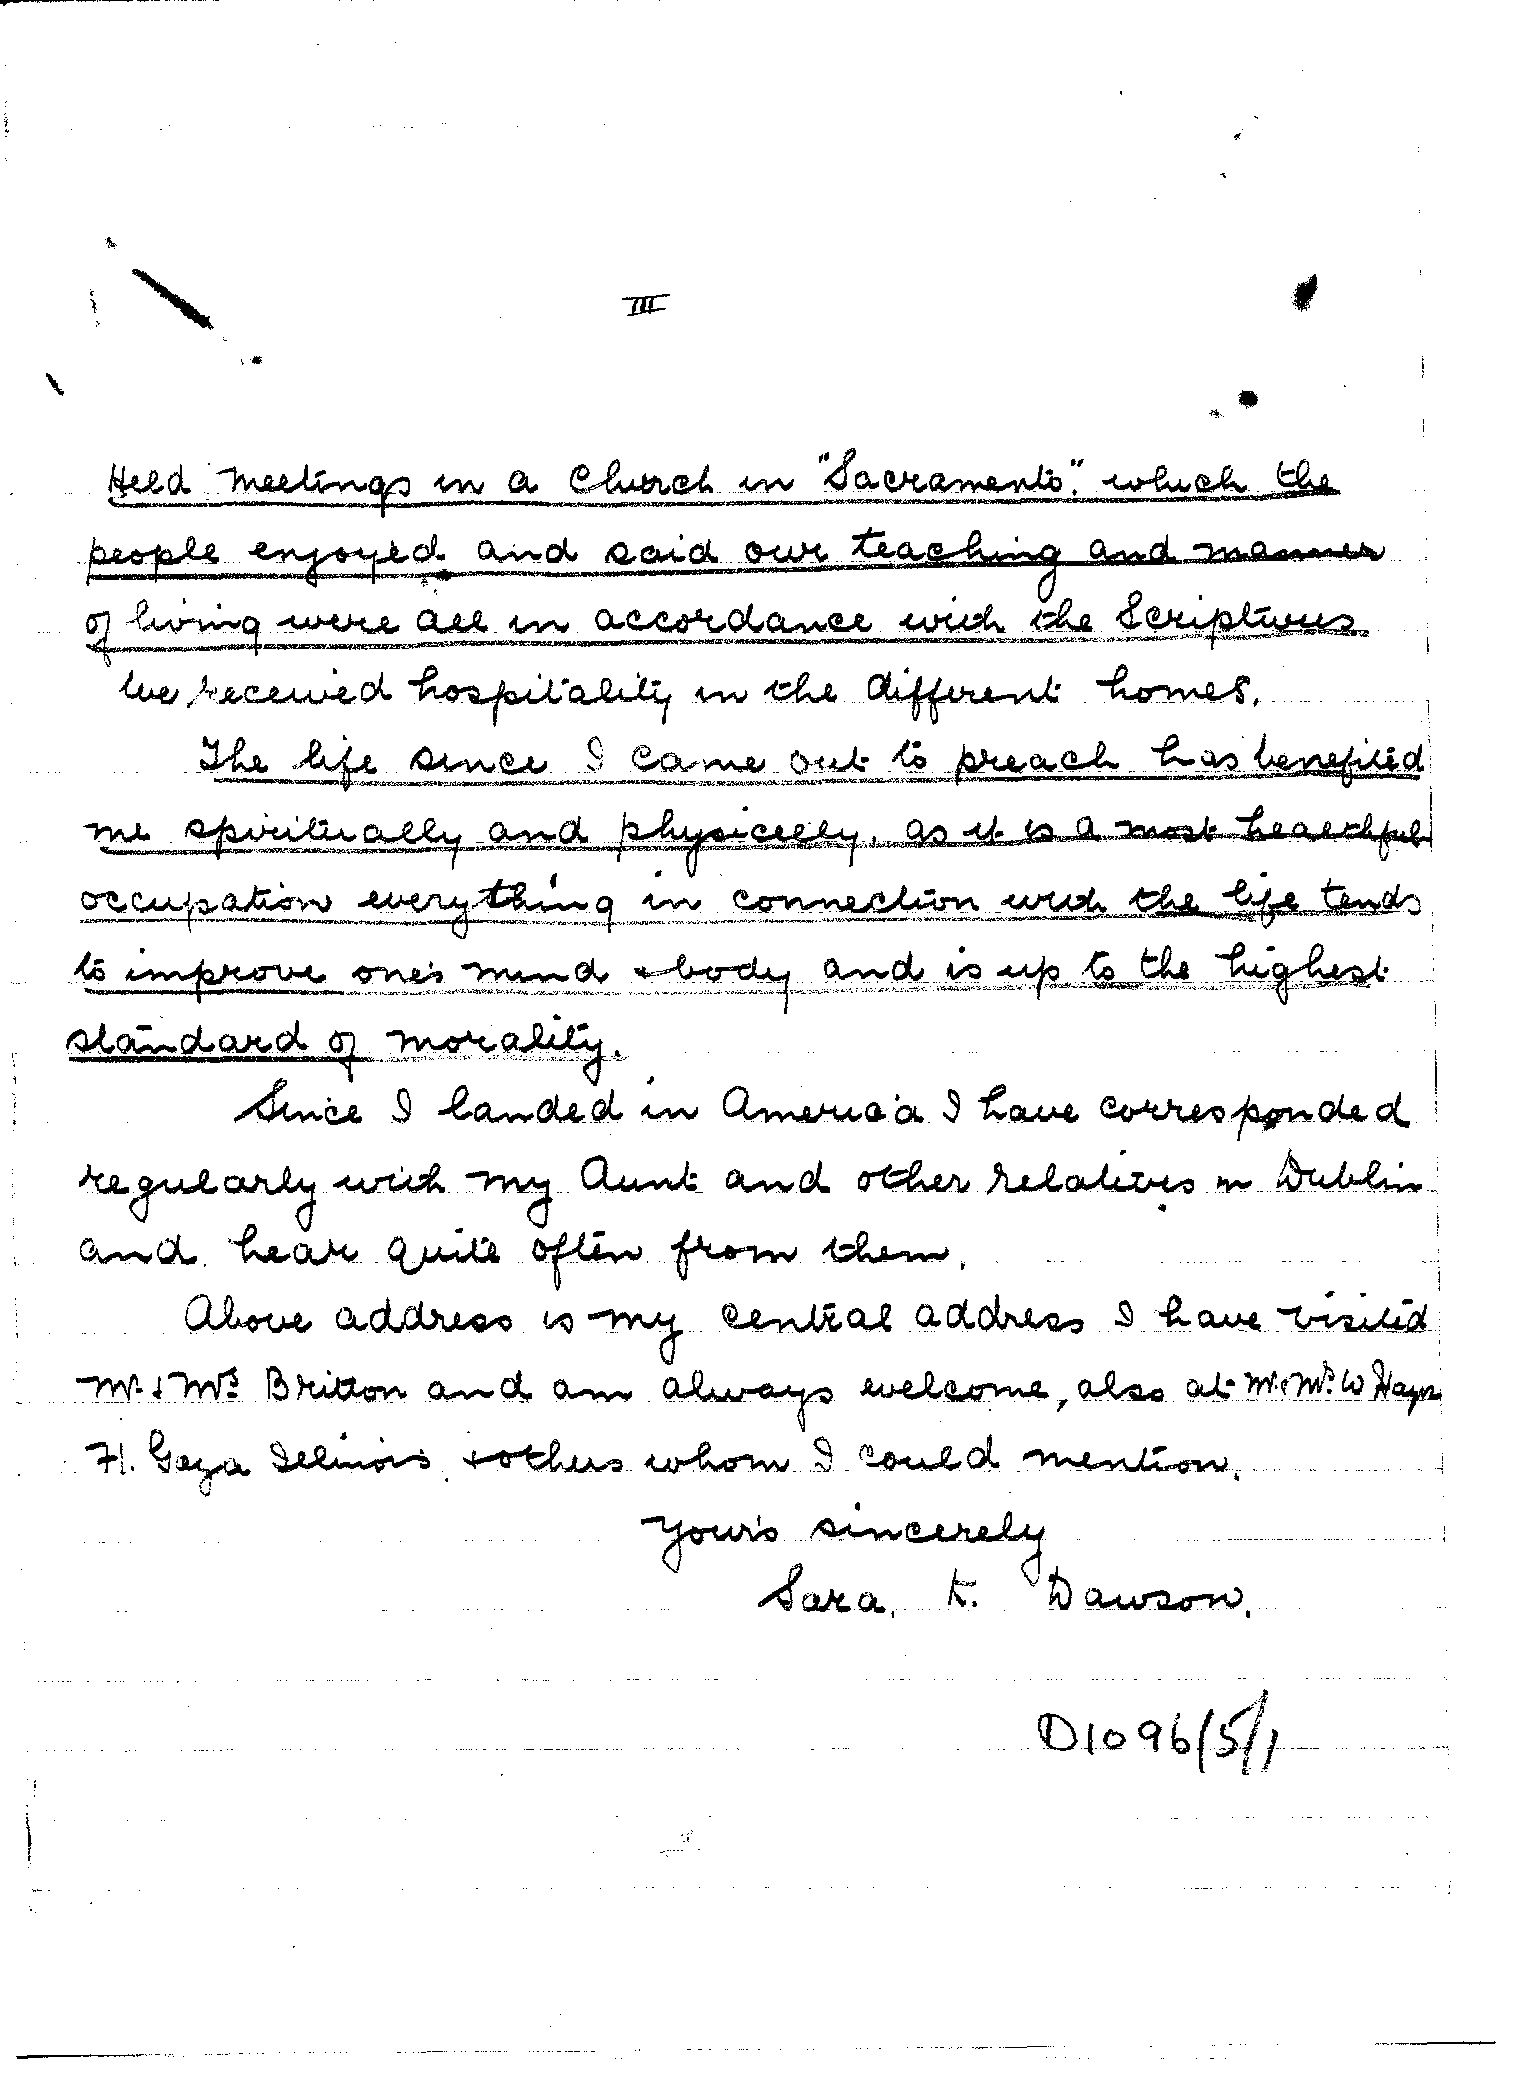 III
Held meetings in a Church in "Sacramento". which the
people enjoyed and said our teaching and manner
of living were all in accordance with the Scriptures
We received hospitality in the different homes.
The life since I came out to preach has benefited
me spiritually and physically, as it is a most healthful
occupation everything in connection with the life tends
to improve one's mind & body and is up to the highest
standard of morality.
Since I landed in America I have corresponded
regularly with my Aunt and other relatives in Dublin
and hear quite often from them.
Above address is my central address I have visited
Mr. & Mrs. Britton and am always welcome, also at Mr. & Mrs. W
Illinois & others whom I could mention.
Your's sincerely
Sara. K. Dawson.
D1096/5/1